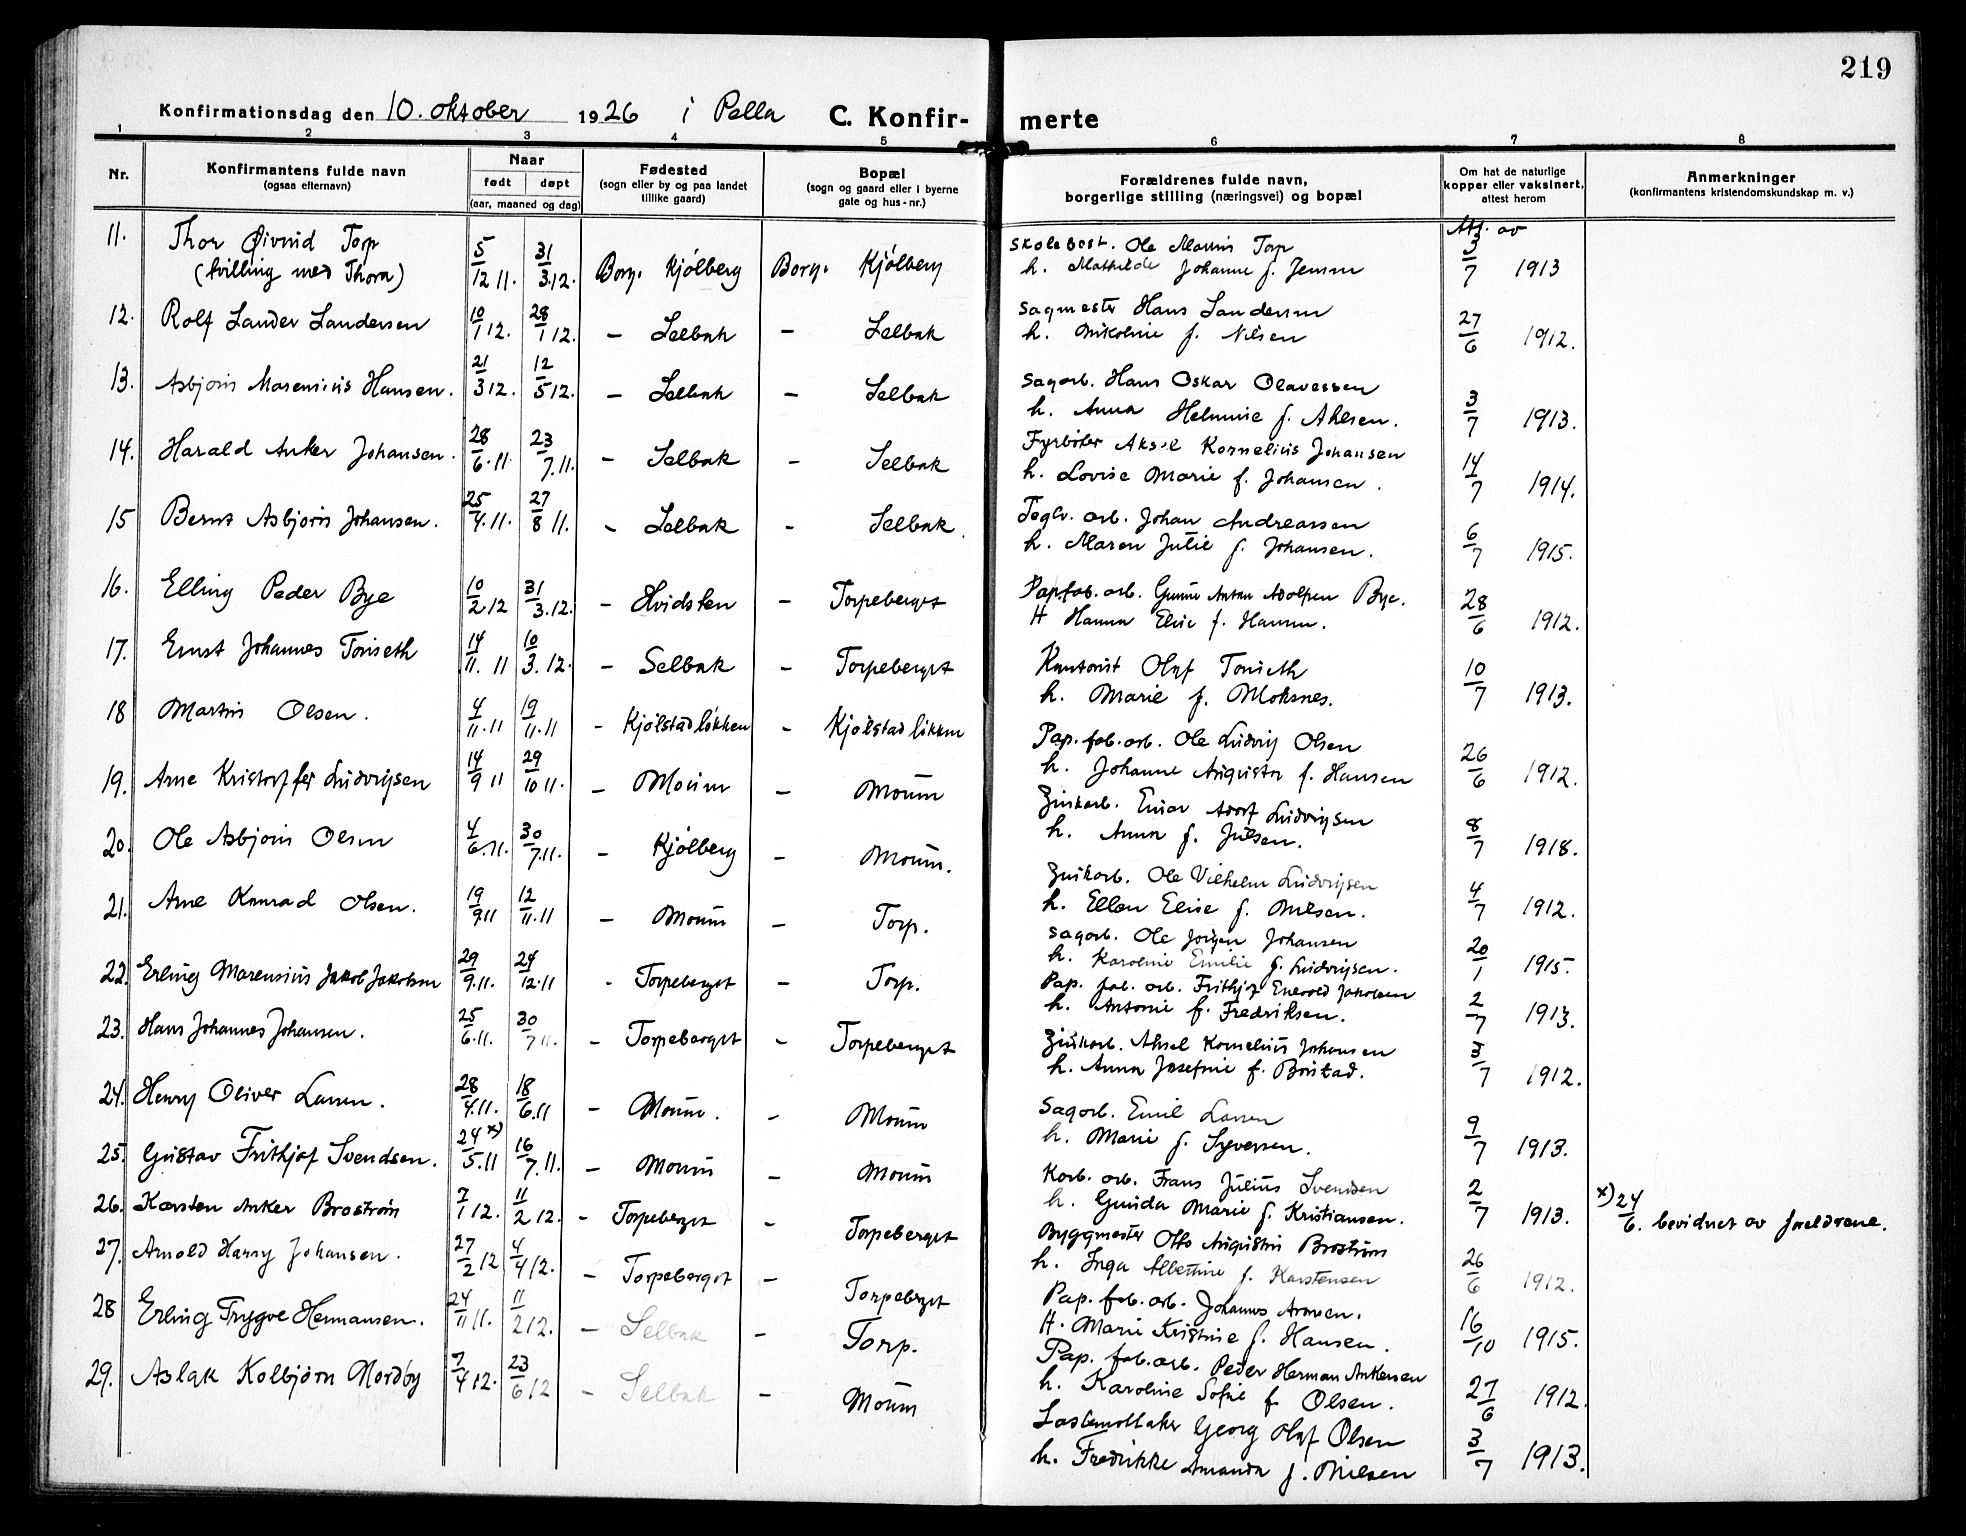 219
Konfirmationsdag den 10. oktober 1926 i Pella C. Konfir- merte
1 2 3 4 5 6 7 8
Nr. Konfirmantens fulde navn (ogsaa efternavn) Naar født døpt (aar, maaned og dag) Fødested (sogn eller by og paa landet tillike gaard) Bopæl (sogn og gaard eller i byerne gate og hus-nr.) Forældrenes fulde navn, borgerlige stilling (næringsvei) og bopæl Om hat de naturlige kopper eller vaksinert, attest herom Anmerkninger (konfirmantens kristendomskundskap m. v.)
11. Thor Øivind Torp Skolebest. Ole Martin Torp Att. av
(tvilling med Thora) 5/12 11. 31/3.12. Borge Kjölberg Borge Kjölberg h. Mathilde Johanne f. Jensen 3/7 1913
12. Rolf Sander Sandersen 10/1 12. 28/1 12. - Selbak - Selbak Sagmester Hans Sandersen
h. Nikoline f. Nilsen 27/6 1912.
13. Asbjörn Marenius Hansen. 21/3 12. 12/5 12. - Selbak - Selbak Sagarb. Hans Oskar Olavessen
h. Anna Helmine f. Ahlsen. 3/7 1913.
14. Harald Anker Johansen. 28/6.11. 23/7.11. - Selbak - Selbak Fyrböter Aksel Kornelius Johansen
h. Lovise Marie f. Johansen. 14/7 1914.
15 Bernt Asbjörn Johansen. 25/4.11. 27/8 11. - Selbak - Selbak. Teglv. arb. Johan Andreassen
h. Maren Julie f. Johansen. 6/7 1915.
16. Elling Peder Bye 10/2 12 31/3.12. - Hvidsten - Torpeberget Pap.fab. arb. Gunnar Anton Adolfsen Bye.
H Hanna Elise f. Hansen. 28/6 1912.
17. Ernst Johannes Tonseth 14/11. 11 10/3. 12. - Selbak - Torpeberget Kontorist Olaf Tonseth
h. Marie f. Moksnes. 10/7 1913.
18 Martin Olsen. 4/11.11 19/11.11 - Kjölstadlökken - Kjölstadlökken Pap. fab. arb. Ole Ludvig Olsen
h. Johanne Augusta f. Hansen 26/6 1912.
19. Arne Kristoffer Ludvigsen 14/9 11 29/10 11. - Moum - Moum Zinkarb. Einar Adolf Ludvigsen
h. Anna f. Julsen. 8/7 1918.
20. Ole Asbjörn Olsen 4/6.11. 30/7.11. - Kjölberg - Moum. Zinkarb. Ole Vilhelm Ludvigsen
h. Ellen Elise f. Nilsen. 4/7 1912.
21. Arne Konrad Olsen. 19/9.11 12/11.11 - Moum - Torp. Sagarb. Ole Jörgen Johansen
h. Karoline Emilie f. Ludvigsen. 20/1 1915.
22. Erling Marensius Jakob Jakobsen 29/9.11. 24/12.11 - Torpeberget - Torp. Pap. fab. arb. Frithjof Enevold Jakobsen
h. Antonie f. Fredriksen. 2/7 1913.
23. Hans Johannes Johansen. 25/6.11. 30/7 11. - Torpeberget - Torpeberget Zinkarb. Aksel Kornelius Johansen
h. Anna Josefine f. Böistad. 3/7 1912.
24. Henry Oliver Larsen. 28/4.11. 18/6.11 - Moum. - Moum Sagarb. Emil Larsen
h. Marie f. Syversen. 9/7 1913.
25. Gustav Frithjof Svendsen. 24 x)/5.11 16/7.11. - Moum - Moum Korb. arb. Frans Julius Svendsen
h. Gunda Marie f. Kristiansen. 2/7 1913. x) 24/6. bevidnet av foreldrene.
26. Karsten Anker Broström 7/1 12. 11/2 12. - Torpeberget - Torpeberget Byggmester Otto Augustin Broström
h. Inga Albertine f. Karstensen 26/6 1912.
27. Arnold Harry Johansen. 27/2 12 4/4 12. - Torpeberget - Torpeberget Pap. fab. arb. Johannes Arnesen.
H. Marie Kristine f. Hansen. 16/10 1915.
28 Erling Trygve Hermansen. 24/11 11. 11/2 12. - Selbak - Torp. Pap. fab. arb. Peder Herman Ankersen
h. Karoline Sofie f. Olsen. 27/6 1912.
29. Aslak Kolbjörn Nordby 7/4 12. 23/6.12 - Selbak - Moum Lastemottaker Georg Olaf Olsen
h. Fredrikke Amanda f. Nielsen 3/7 1913.